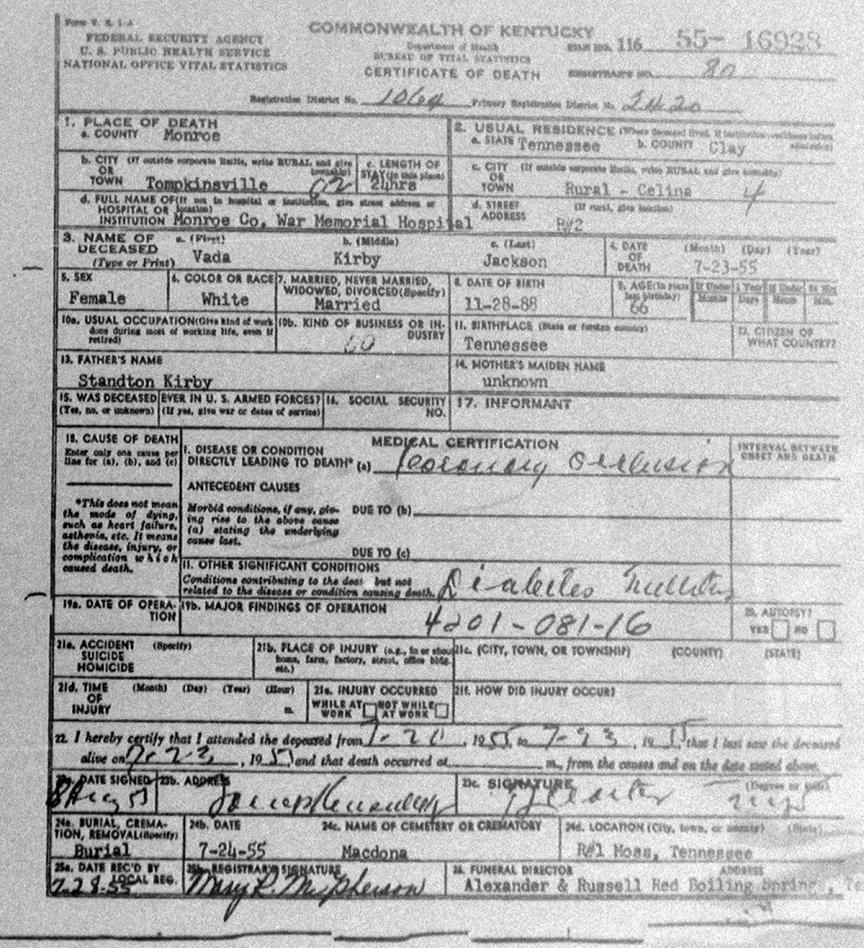 Form V. S. 1-A
FEDERAL SECURITY AGENCY
U. S. PUBLIC HEALTH SERVICE
NATIONAL OFFICE VITAL STATISTICS
COMMONWEALTH OF KENTUCKY
Department of Health
BUREAU OF VITAL STATISTICS
CERTIFICATE OF DEATH
FILE NO. 116 55- 16928
REGISTRAR'S NO. 80
Registration District No. 1064 Primary Registration District No.
1. PLACE OF DEATH
a. COUNTY Monroe
2. USUAL RESIDENCE (Where deceased lived. If institution: residence before admission)
a. STATE Tennessee b. COUNTY Clay
b. CITY (If outside corporate limits, write RURAL and give township)
OR TOWN Tompkinsville 02
c. LENGTH OF STAY (in this place) 24hrs
c. CITY (If outside corporate limits, write RURAL and give township)
OR TOWN Rural - Celina 4
d. FULL NAME OF (If not in hospital or institution, give street address or location)
HOSPITAL OR INSTITUTION Monroe Co. War Memorial Hospital
d. STREET ADDRESS (If rural, give location)
R#2
3. NAME OF DECEASED (Type or Print)
a. (First) b. (Middle) c. (Last)
Vada Kirby Jackson
4. DATE OF DEATH (Month) (Day) (Year)
7-23-55
5. SEX
Female
6. COLOR OR RACE
White
7. MARRIED, NEVER MARRIED, WIDOWED, DIVORCED (Specify)
Married
8. DATE OF BIRTH
11-28-88
9. AGE (In years last birthday)
66
If Under 1 Year
Months Days
If Under 24 Hrs.
Hours Min.
10a. USUAL OCCUPATION (Give kind of work done during most of working life, even if retired)
10b. KIND OF BUSINESS OR INDUSTRY
11. BIRTHPLACE (State or foreign country)
Tennessee
12. CITIZEN OF WHAT COUNTRY?
13. FATHER'S NAME
Standton Kirby
14. MOTHER'S MAIDEN NAME
unknown
15. WAS DECEASED EVER IN U. S. ARMED FORCES?
(Yes, no, or unknown) (If yes, give war or dates of service)
16. SOCIAL SECURITY NO.
17. INFORMANT
18. CAUSE OF DEATH
Enter only one cause per line for (a), (b), and (c)
*This does not mean the mode of dying, such as heart failure, asthenia, etc. It means the disease, injury, or complication which caused death.
MEDICAL CERTIFICATION
INTERVAL BETWEEN ONSET AND DEATH
I. DISEASE OR CONDITION
DIRECTLY LEADING TO DEATH* (a) Coronary Occlusion
ANTECEDENT CAUSES
Morbid conditions, if any, giving rise to the above cause (a) stating the underlying cause last.
DUE TO (b)
DUE TO (c)
II. OTHER SIGNIFICANT CONDITIONS
Conditions contributing to the death but not
related to the disease or condition causing death. Diabetes Mellitus
19a. DATE OF OPERATION
19b. MAJOR FINDINGS OF OPERATION
4201-081-16
20. AUTOPSY?
YES NO
21a. ACCIDENT SUICIDE HOMICIDE (Specify)
21b. PLACE OF INJURY (e.g., in or about home, farm, factory, street, office bldg. etc.)
21c. (CITY, TOWN, OR TOWNSHIP) (COUNTY) (STATE)
21d. TIME OF INJURY (Month) (Day) (Year) (Hour) m.
21e. INJURY OCCURRED
WHILE AT WORK NOT WHILE AT WORK
21f. HOW DID INJURY OCCUR?
22. I hereby certify that I attended the deceased from , 1955, to 7-23, 1955, that I last saw the deceased
alive on 7-23, 1955, and that death occurred at m., from the causes and on the date stated above.
23a. DATE SIGNED
23b. ADDRESS
23c. SIGNATURE (Degree or title)
24a. BURIAL, CREMATION, REMOVAL (Specify)
Burial
24b. DATE
7-24-55
24c. NAME OF CEMETERY OR CREMATORY
Macdona
24d. LOCATION (City, town, or county) (State)
R#1 Moss, Tennessee
25a. DATE REC'D BY LOCAL REG.
7.28.55
25b. REGISTRAR'S SIGNATURE
Mary R. McPherson
26. FUNERAL DIRECTOR ADDRESS
Alexander & Russell Red Boiling Spring , Te